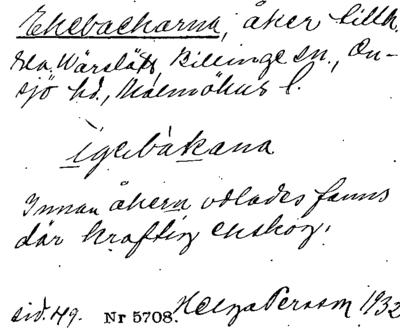 Ekebackarna, åker tillh.
Wärsläts, Billinge sn., On-
sjö hd., Malmöhus l.
igebakana
Innan åkern odlades fanns
där kraftig ekskog.
sid. 49. Nr 5708. Helga Persson 1932